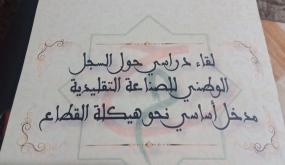 لقاء دراسي حول السجل
الوطني للصناعة التقليدية
مدخل أساسي نحو هيكلة القطاع